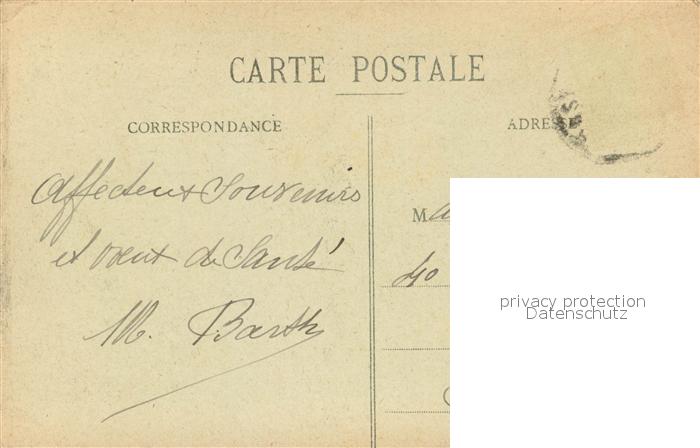 CARTE POSTALE
CORRESPONDANCE
ADRESSE
Affecteux Souvenirs
et vœux de Santé
M. Barth
M
40
privacy protection
Datenschutz